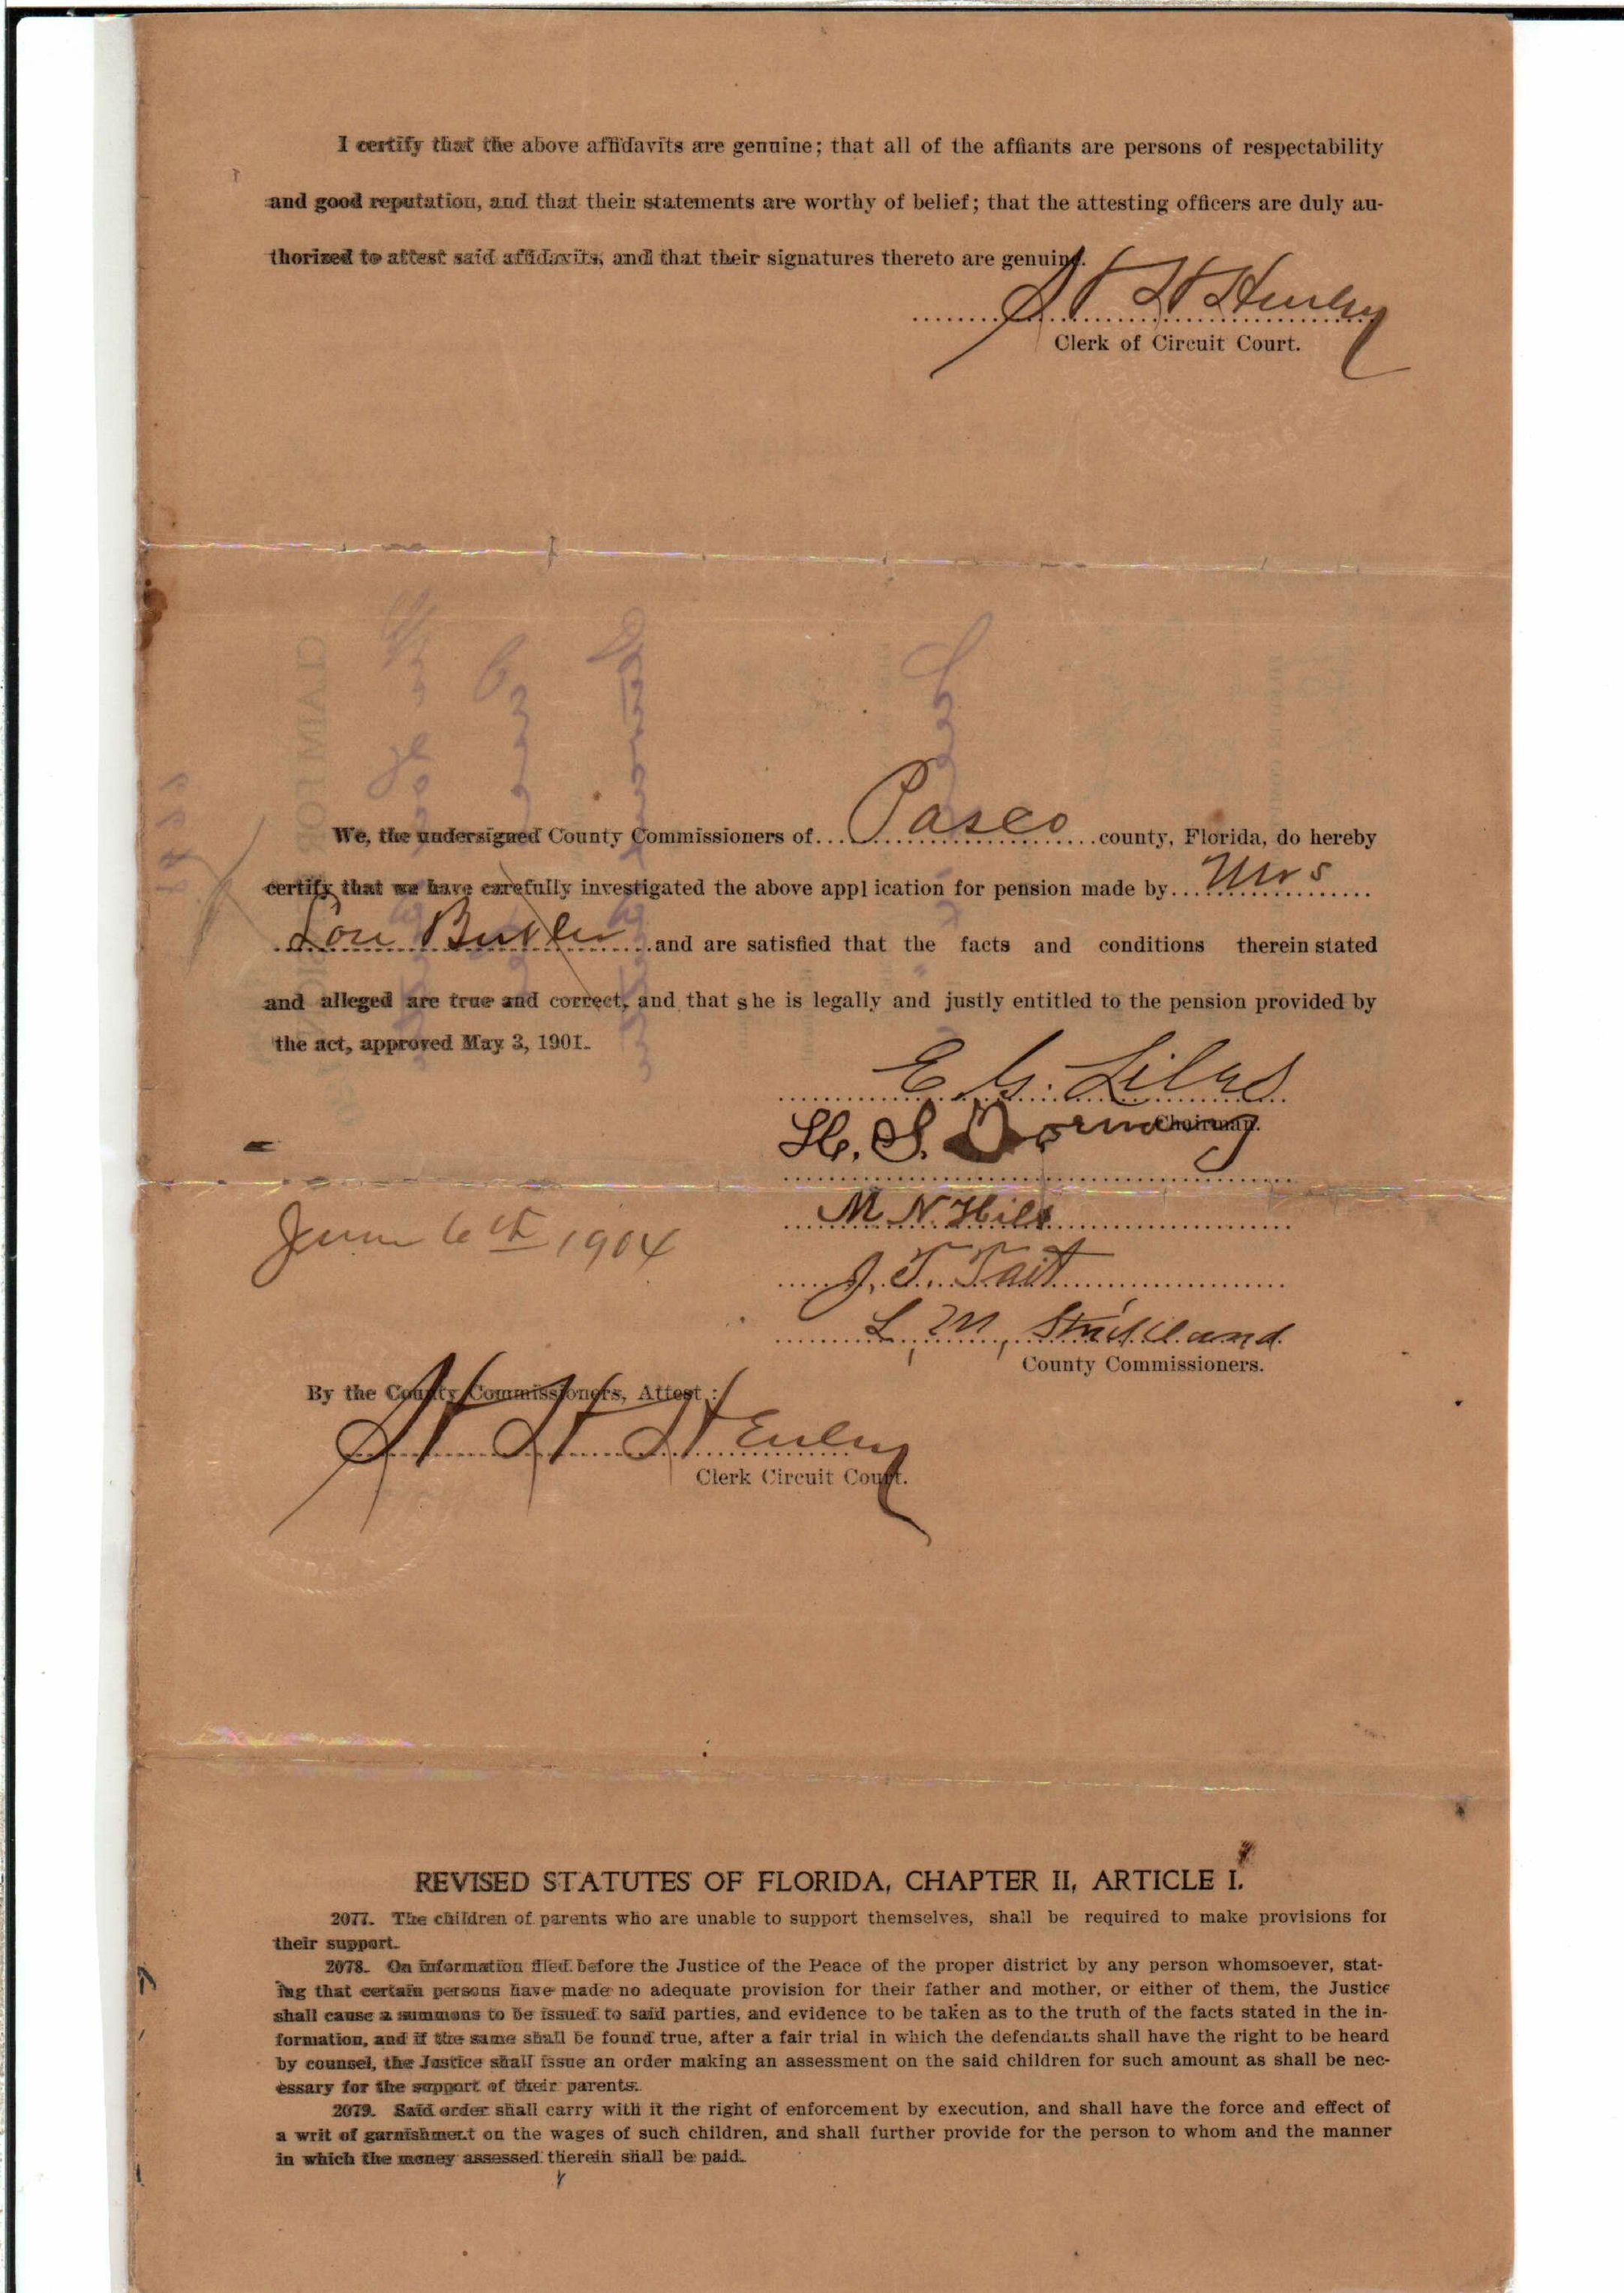 I certify that the above affidavits are genuine; that all of the affiants are persons of respectability
and good reputation, and that their statements are worthy of belief; that the attesting officers are duly au-
thorized to attest said affidavits, and that their signatures thereto are genuine.
Clerk of Circuit Court.
We, the undersigned County Commissioners of Pasco county, Florida, do hereby
certify that we have carefully investigated the above application for pension made by Mrs
Lou Butler and are satisfied that the facts and conditions therein stated
and alleged are true and correct, and that she is legally and justly entitled to the pension provided by
the act, approved May 3, 1901.
E G.
Chairman.
H. S. Dormany
M N. Hill
June 6th 1904
J. T. Tait
L. M. Strickland
County Commissioners.
By the County Commissioners, Attest:
Clerk Circuit Court.
REVISED STATUTES OF FLORIDA, CHAPTER II, ARTICLE I.
2077. The children of parents who are unable to support themselves, shall be required to make provisions for
their support.
2078. On information filed before the Justice of the Peace of the proper district by any person whomsoever, stat-
ing that certain persons have made no adequate provision for their father and mother, or either of them, the Justice
shall cause a summons to be issued to said parties, and evidence to be taken as to the truth of the facts stated in the in-
formation, and if the same shall be found true, after a fair trial in which the defendants shall have the right to be heard
by counsel, the Justice shall issue an order making an assessment on the said children for such amount as shall be nec-
essary for the support of their parents.
2079. Said order shall carry with it the right of enforcement by execution, and shall have the force and effect of
a writ of garnishment on the wages of such children, and shall further provide for the person to whom and the manner
in which the money assessed therein shall be paid.